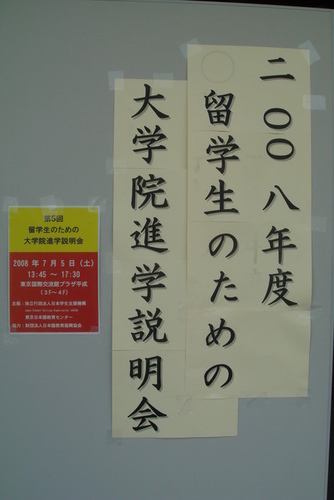 二〇〇八年度
留学生のための
大学院進学説明会
第5回
留学生のための
大学院進学説明会
2008 年 7 月 5 日 (土)
13:45 ～ 17:30
東京国際交流館プラザ平成
(3F～4F)
主催：独立行政法人日本学生支援機構
東京日本語教育センター
協力：財団法人日本語教育振興協会